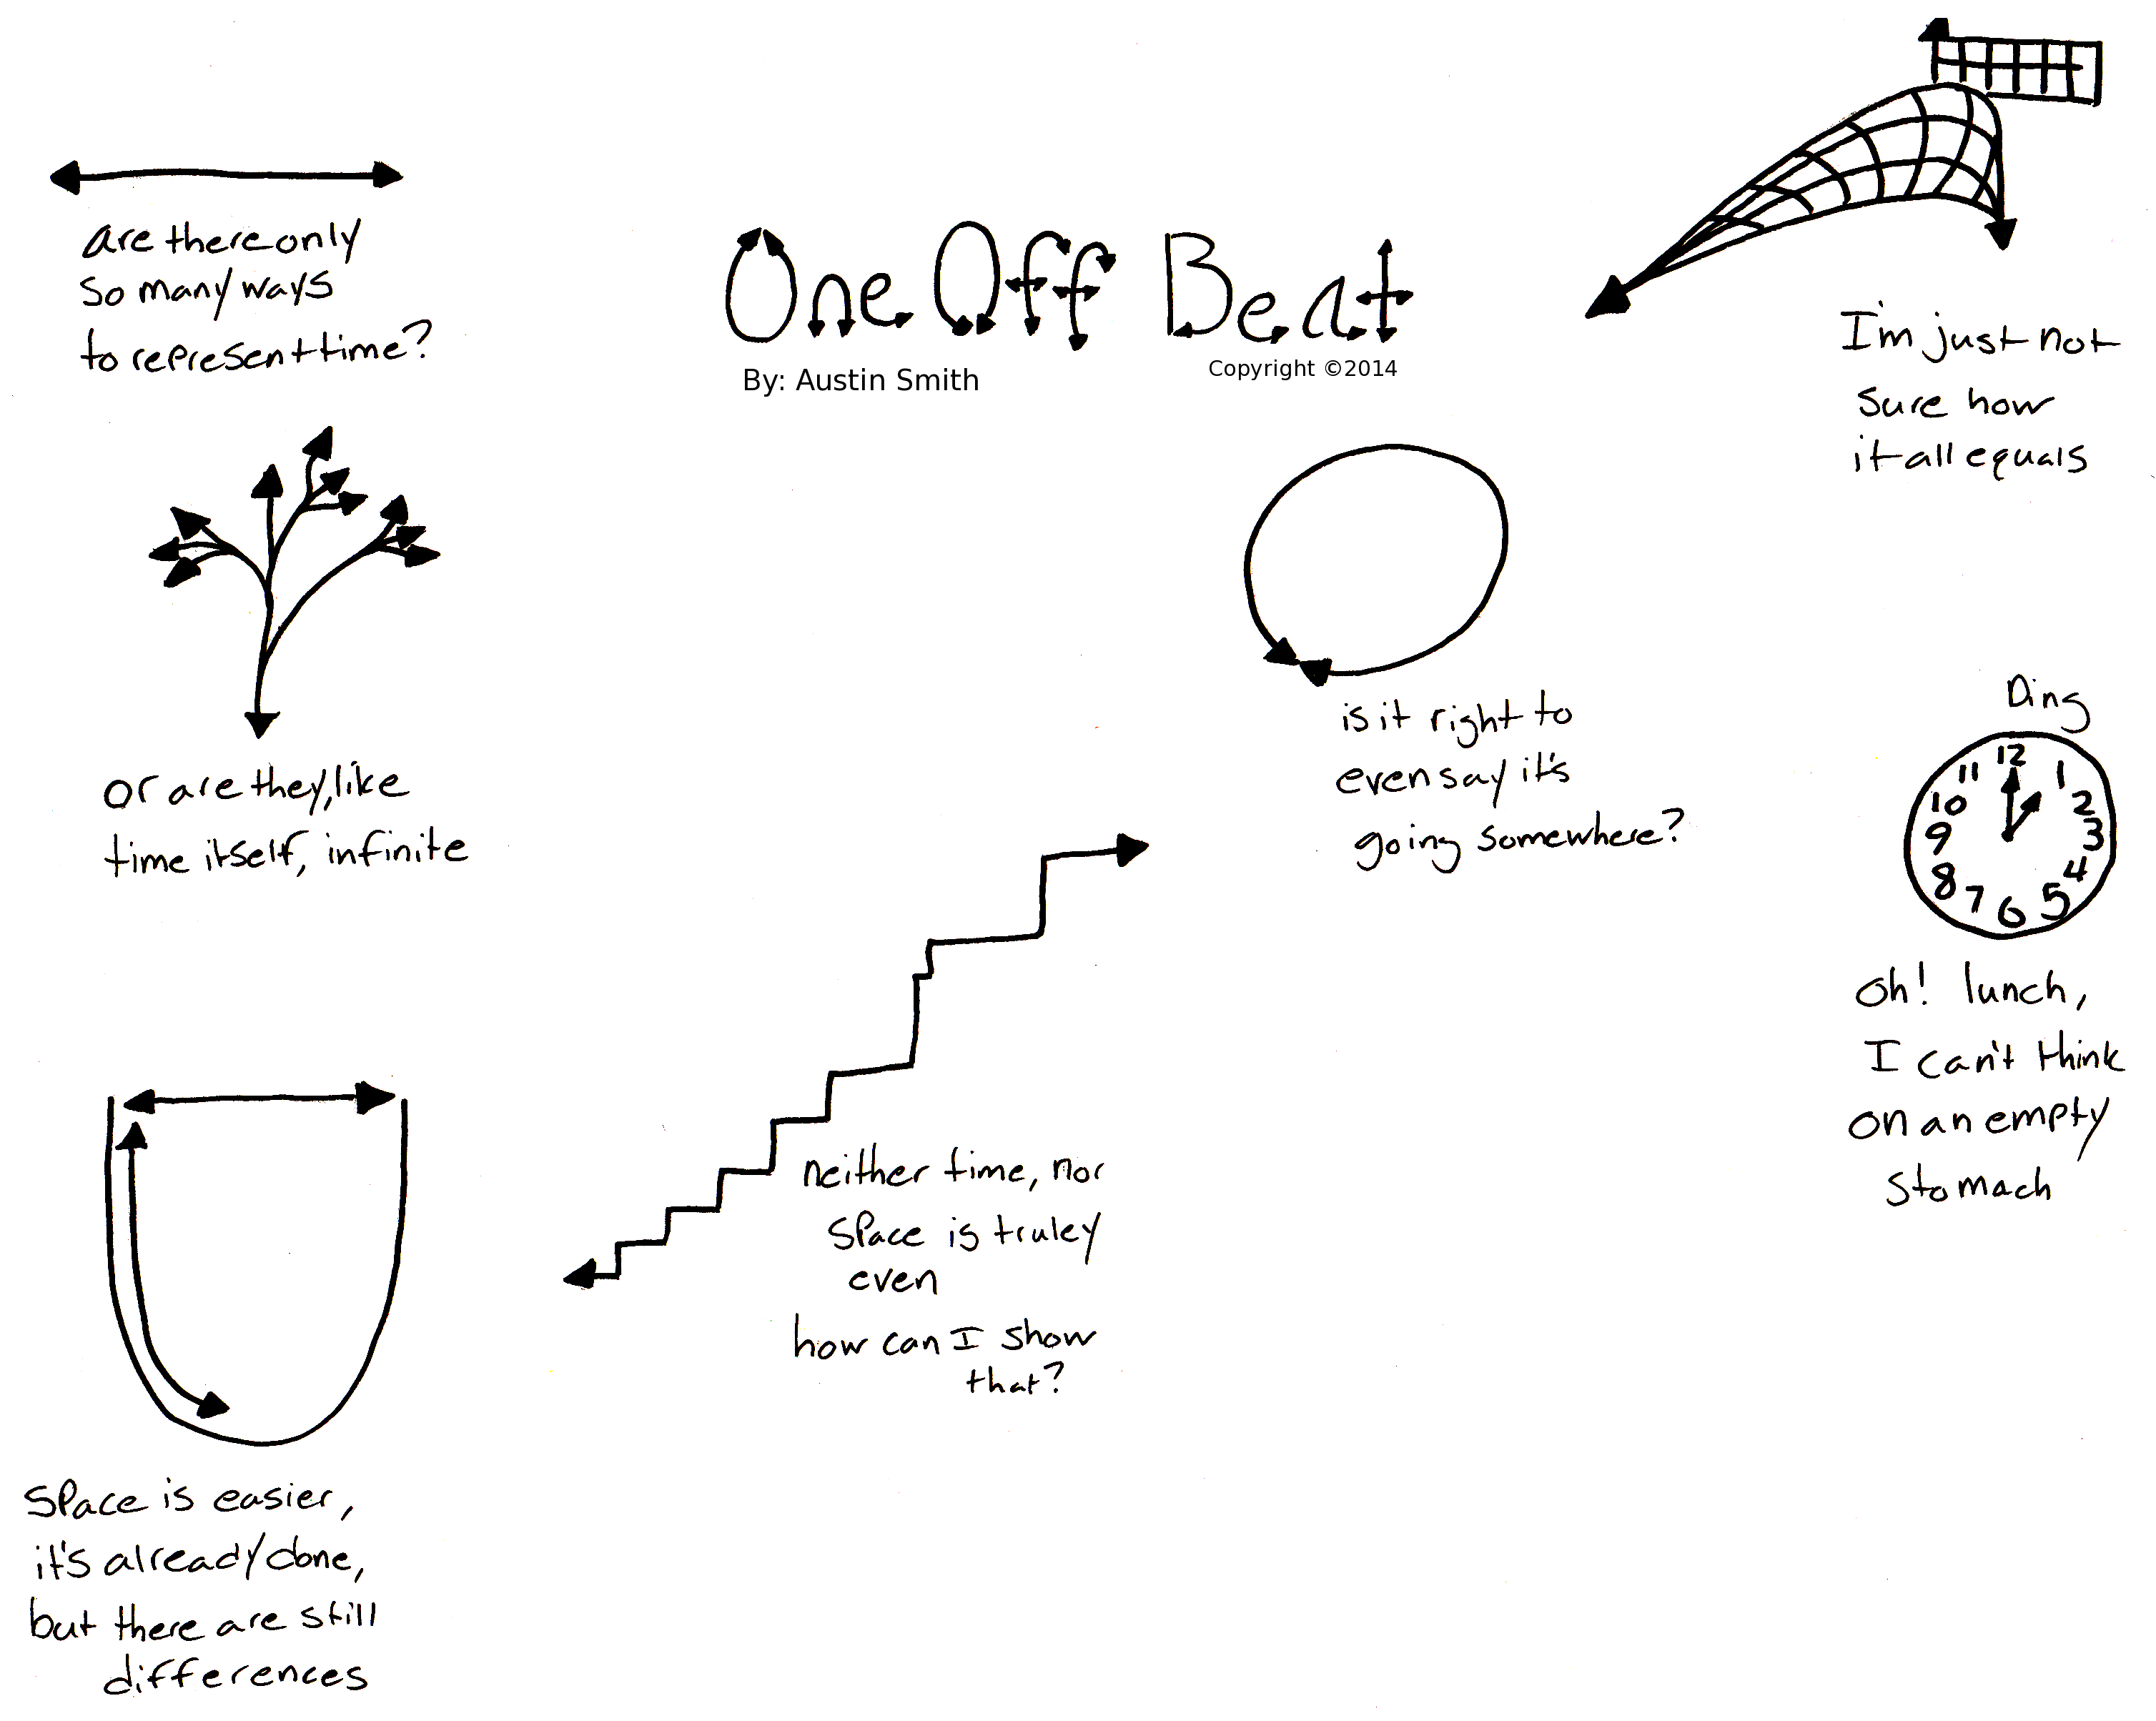 One Off Beat
By: Austin Smith
Copyright ©2014
are there only
so many ways
to represent time?
or are they, like
time itself, infinite
Space is easier,
it's already done,
but there are still
differences
neither time, nor
space is truley
even
how can I show
that?
is it right to
even say it's
going somewhere?
I'm just not
sure how
it all equals
Ding
12
11 1
10 2
9 3
8 4
7 6 5
oh! lunch,
I can't think
on an empty
stomach